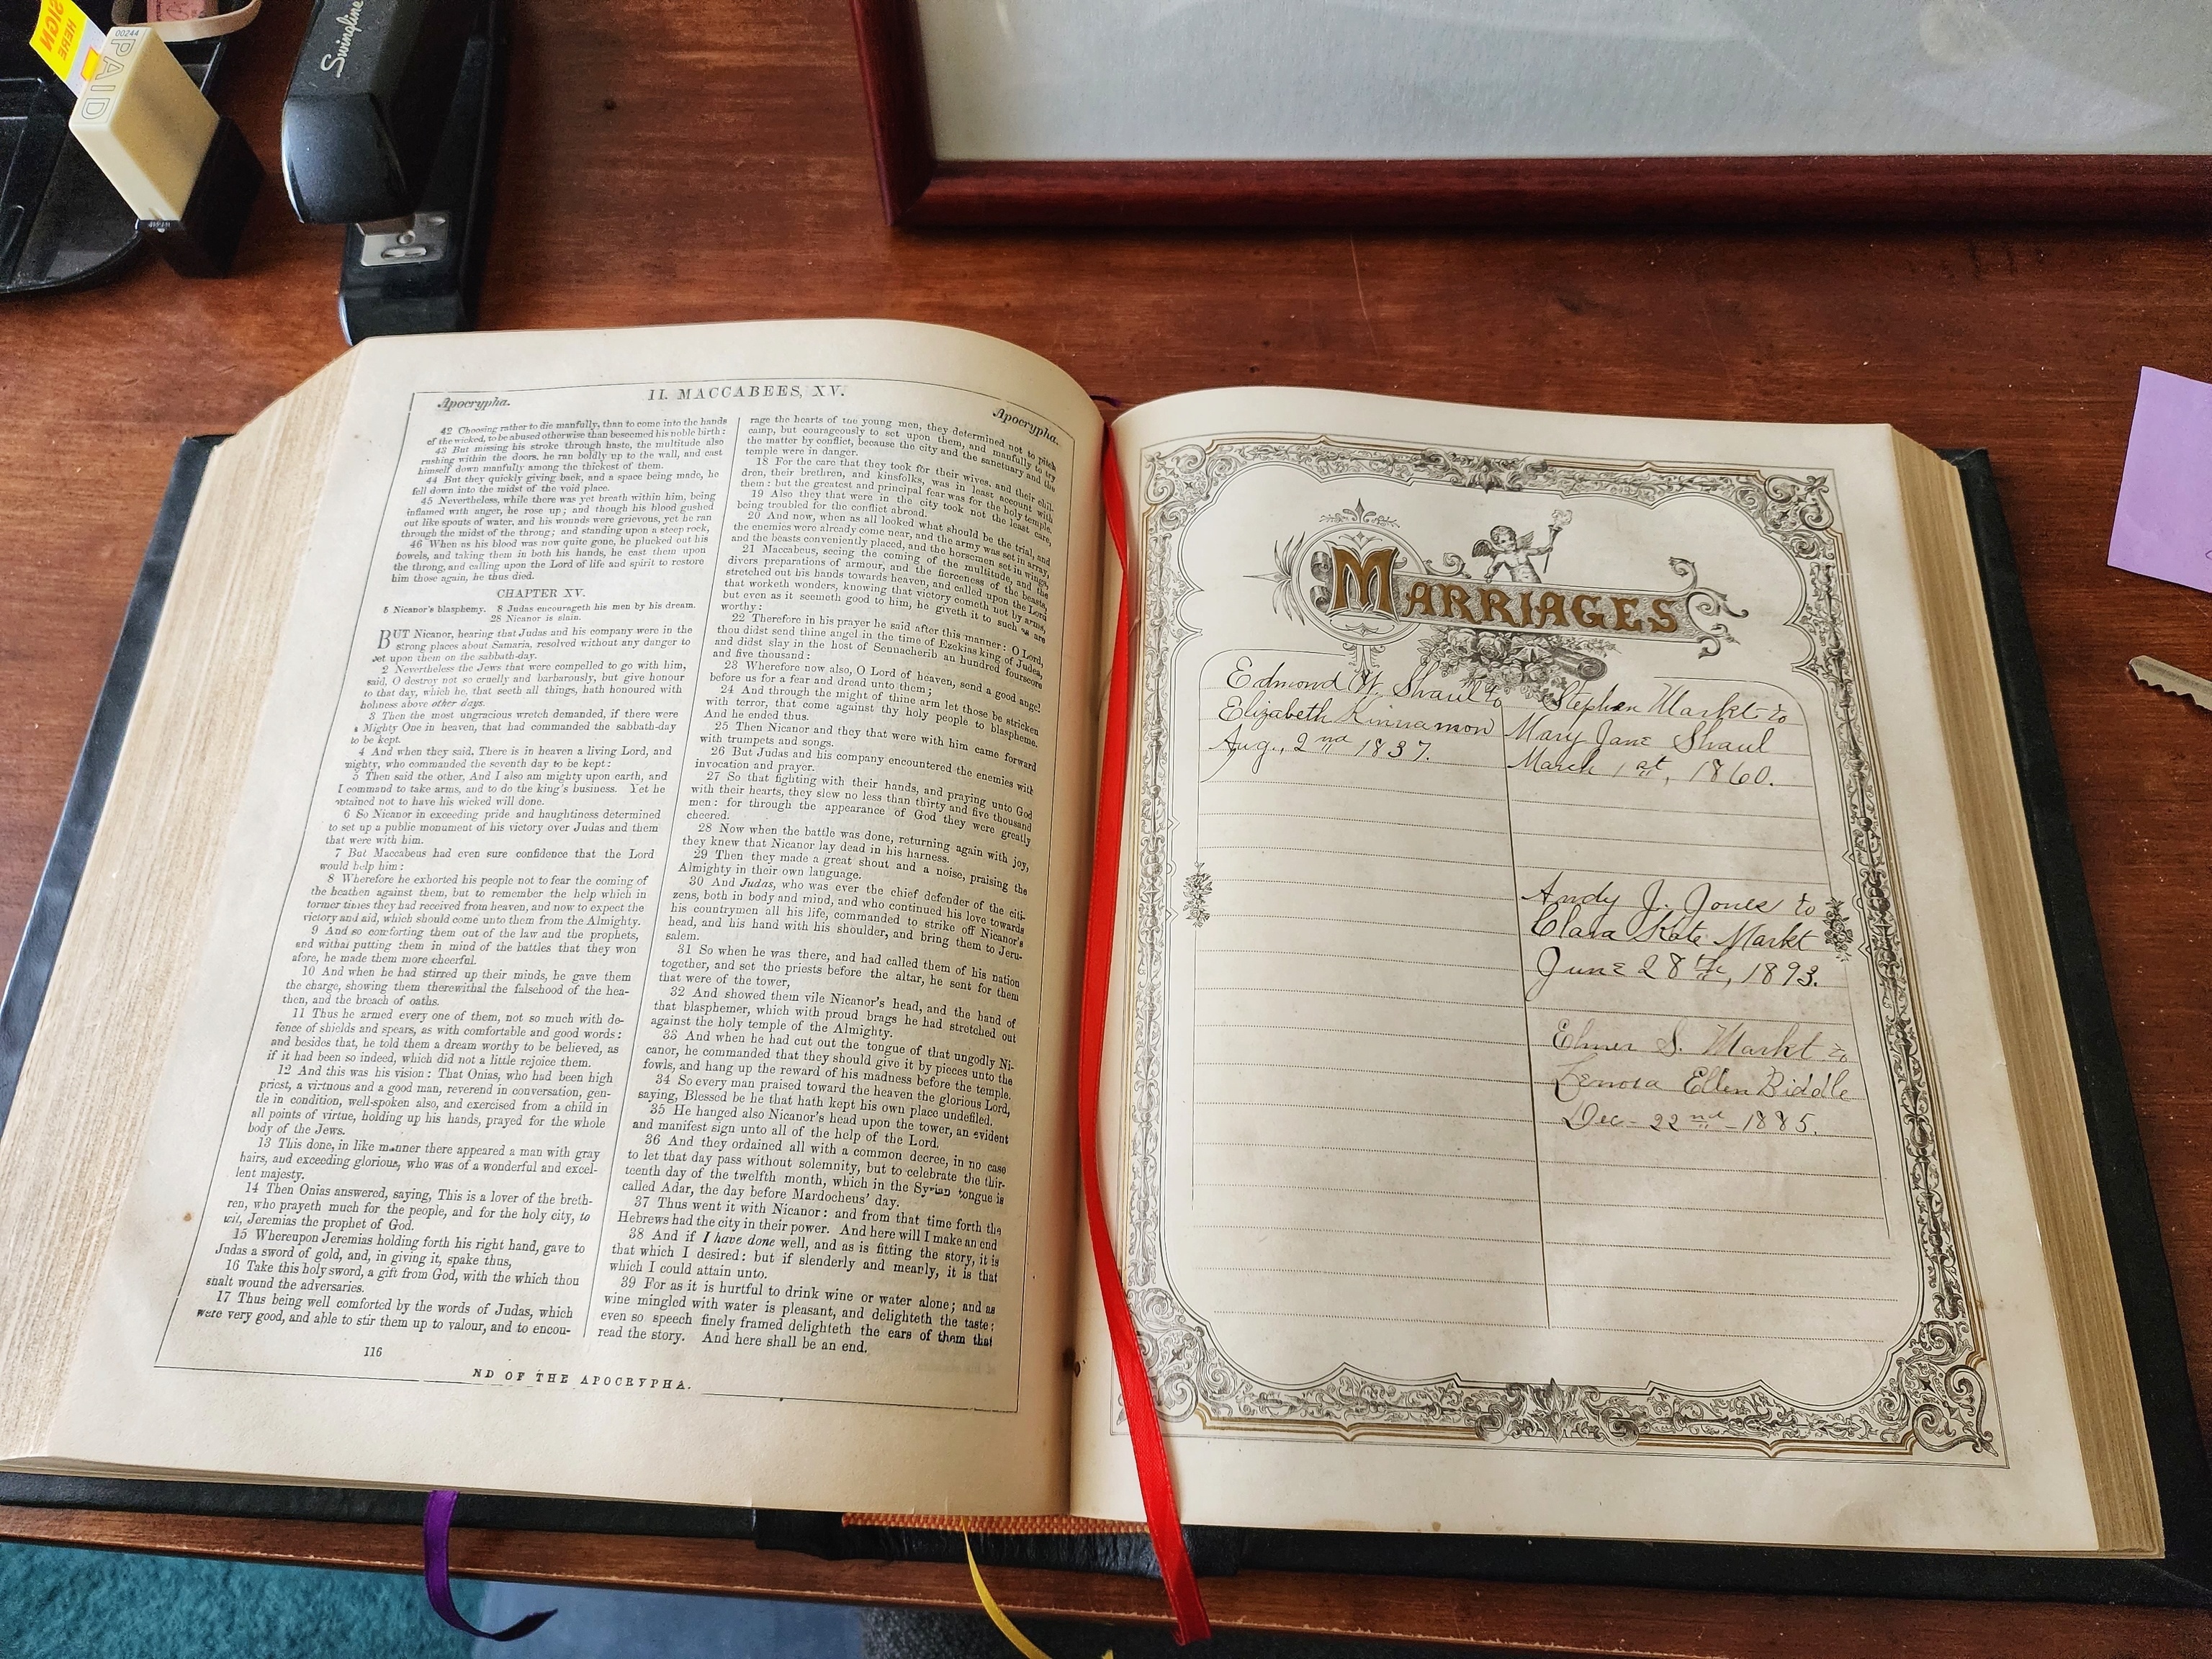 SIGN
HERE
00244
PAID
Swingline
Apocrypha.
II. MACCABEES, XV.
Apocrypha.
42 Choosing rather to die manfully, than to come into the hands
of the wicked, to be abused otherwise than beseemed his noble birth:
43 But missing his stroke through haste, the multitude also
rushing within the doors, he ran boldly up to the wall, and cast
himself down manfully among the thickest of them.
44 But they quickly giving back, and a space being made, he
fell down into the midst of the void place.
45 Nevertheless, while there was yet breath within him, being
inflamed with anger, he rose up; and though his blood gushed
out like spouts of water, and his wounds were grievous, yet he ran
through the midst of the throng; and standing upon a steep rock,
46 When as his blood was now quite gone, he plucked out his
bowels, and taking them in both his hands, he cast them upon
the throng, and calling upon the Lord of life and spirit to restore
him those again, he thus died.
CHAPTER XV.
5 Nicanor's blasphemy. 8 Judas encourageth his men by his dream.
28 Nicanor is slain.
BUT Nicanor, hearing that Judas and his company were in the
strong places about Samaria, resolved without any danger to
set upon them on the sabbath-day.
2 Nevertheless the Jews that were compelled to go with him,
said, O destroy not so cruelly and barbarously, but give honour
to that day, which he, that seeth all things, hath honoured with
holiness above other days.
3 Then the most ungracious wretch demanded, if there were
a Mighty One in heaven, that had commanded the sabbath-day
to be kept.
4 And when they said, There is in heaven a living Lord, and
mighty, who commanded the seventh day to be kept:
5 Then said the other, And I also am mighty upon earth, and
I command to take arms, and to do the king's business. Yet he
obtained not to have his wicked will done.
6 So Nicanor in exceeding pride and haughtiness determined
to set up a public monument of his victory over Judas and them
that were with him.
7 But Maccabeus had even sure confidence that the Lord
would help him:
8 Wherefore he exhorted his people not to fear the coming of
the heathen against them, but to remember the help which in
former times they had received from heaven, and now to expect the
victory and aid, which should come unto them from the Almighty.
9 And so comforting them out of the law and the prophets,
and withal putting them in mind of the battles that they won
afore, he made them more cheerful.
10 And when he had stirred up their minds, he gave them
the charge, showing them therewithal the falsehood of the hea-
then, and the breach of oaths.
11 Thus he armed every one of them, not so much with de-
fence of shields and spears, as with comfortable and good words:
and besides that, he told them a dream worthy to be believed, as
if it had been so indeed, which did not a little rejoice them.
12 And this was his vision: That Onias, who had been high
priest, a virtuous and a good man, reverend in conversation, gen-
tle in condition, well-spoken also, and exercised from a child in
all points of virtue, holding up his hands, prayed for the whole
body of the Jews.
13 This done, in like manner there appeared a man with gray
hairs, and exceeding glorious, who was of a wonderful and excel-
lent majesty.
14 Then Onias answered, saying, This is a lover of the breth-
ren, who prayeth much for the people, and for the holy city, to
wit, Jeremias the prophet of God.
15 Whereupon Jeremias holding forth his right hand, gave to
Judas a sword of gold, and, in giving it, spake thus,
16 Take this holy sword, a gift from God, with the which thou
shalt wound the adversaries.
17 Thus being well comforted by the words of Judas, which
were very good, and able to stir them up to valour, and to encou-
rage the hearts of the young men, they determined not to pitch
camp, but courageously to set upon them, and manfully to try
the matter by conflict, because the city and the sanctuary and the
temple were in danger.
18 For the care that they took for their wives, and their chil-
dren, their brethren, and kinsfolks, was in least account with
them: but the greatest and principal fear was for the holy temple.
19 Also they that were in the city took not the least care,
being troubled for the conflict abroad.
20 And now, when as all looked what should be the trial, and
the enemies were already come near, and the army was set in array,
and the beasts conveniently placed, and the horsemen set in wings,
21 Maccabeus, seeing the coming of the multitude, and the
divers preparations of armour, and the fierceness of the beasts,
stretched out his hands towards heaven, and called upon the Lord
that worketh wonders, knowing that victory cometh not by arms,
but even as it seemeth good to him, he giveth it to such as are
worthy:
22 Therefore in his prayer he said after this manner: O Lord,
thou didst send thine angel in the time of Ezekias king of Judea,
and didst slay in the host of Sennacherib an hundred fourscore
and five thousand:
23 Wherefore now also, O Lord of heaven, send a good angel
before us for a fear and dread unto them;
24 And through the might of thine arm let those be stricken
with terror, that come against thy holy people to blaspheme.
And he ended thus.
25 Then Nicanor and they that were with him came forward
with trumpets and songs.
26 But Judas and his company encountered the enemies with
invocation and prayer.
27 So that fighting with their hands, and praying unto God
with their hearts, they slew no less than thirty and five thousand
men: for through the appearance of God they were greatly
cheered.
28 Now when the battle was done, returning again with joy,
they knew that Nicanor lay dead in his harness.
29 Then they made a great shout and a noise, praising the
Almighty in their own language.
30 And Judas, who was ever the chief defender of the citi-
zens, both in body and mind, and who continued his love towards
his countrymen all his life, commanded to strike off Nicanor's
head, and his hand with his shoulder, and bring them to Jeru-
salem.
31 So when he was there, and had called them of his nation
together, and set the priests before the altar, he sent for them
that were of the tower,
32 And showed them vile Nicanor's head, and the hand of
that blasphemer, which with proud brags he had stretched out
against the holy temple of the Almighty.
33 And when he had cut out the tongue of that ungodly Ni-
canor, he commanded that they should give it by pieces unto the
fowls, and hang up the reward of his madness before the temple.
34 So every man praised toward the heaven the glorious Lord,
saying, Blessed be he that hath kept his own place undefiled.
35 He hanged also Nicanor's head upon the tower, an evident
and manifest sign unto all of the help of the Lord.
36 And they ordained all with a common decree, in no case
to let that day pass without solemnity, but to celebrate the thir-
teenth day of the twelfth month, which in the Syrian tongue is
called Adar, the day before Mardocheus' day.
37 Thus went it with Nicanor: and from that time forth the
Hebrews had the city in their power. And here will I make an end
38 And if I have done well, and as is fitting the story, it is
that which I desired: but if slenderly and meanly, it is that
which I could attain unto.
39 For as it is hurtful to drink wine or water alone; and as
wine mingled with water is pleasant, and delighteth the taste:
even so speech finely framed delighteth the ears of them that
read the story. And here shall be an end.
116
ND OF THE APOCRYPHA.
MARRIAGES
Edmond W. Shaul to
Elizabeth Kinnamon
Aug., 2nd 1837.
Stephen Markt to
Mary Jane Shaul
March 1st, 1860.
Andy J. Jones to
Clara Kate Markt
June 28th, 1893.
Elmer S. Markt to
Lenora Ellen Biddle
Dec- 22nd - 1885.